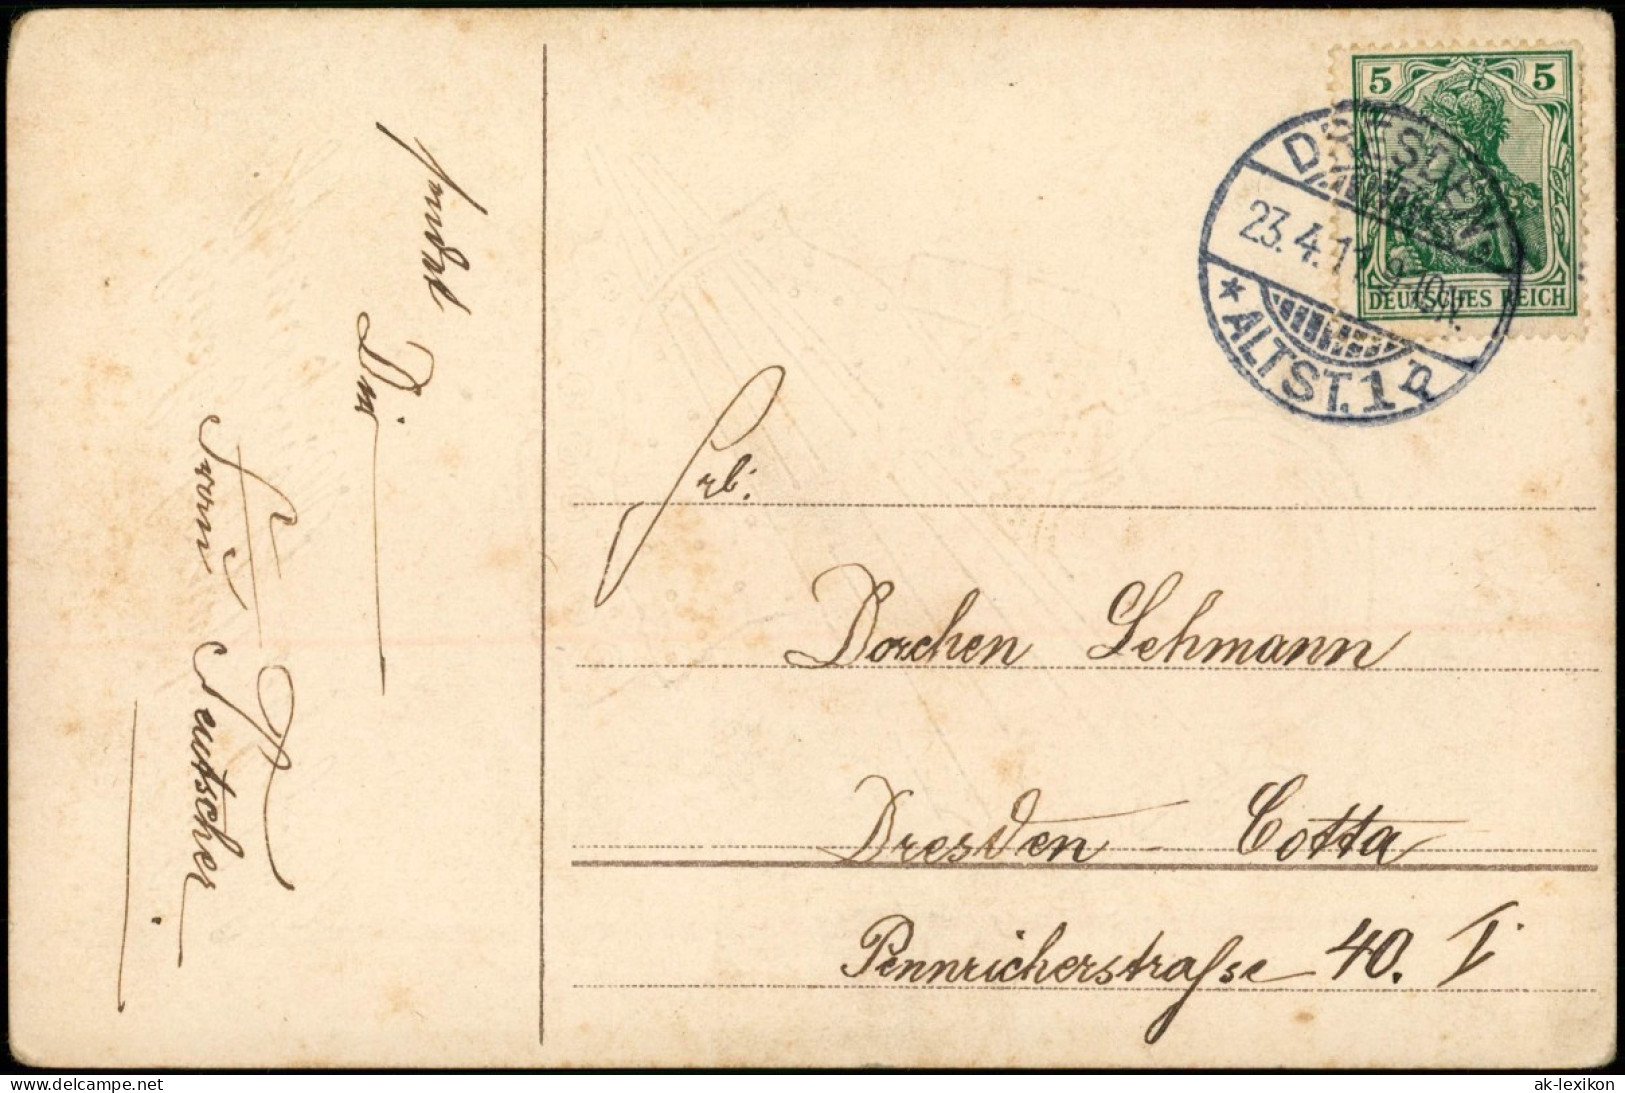 sendet
Dir
Deutscher
5 5
DEUTSCHES REICH
DRESDEN
23.4.11. 9-10N.
* ALTST. 1 n
Frl.
Dorchen Lehmann
Dresden - Cotta
Pennricherstrafse 40. I
www.delcampe.net
ak-lexikon